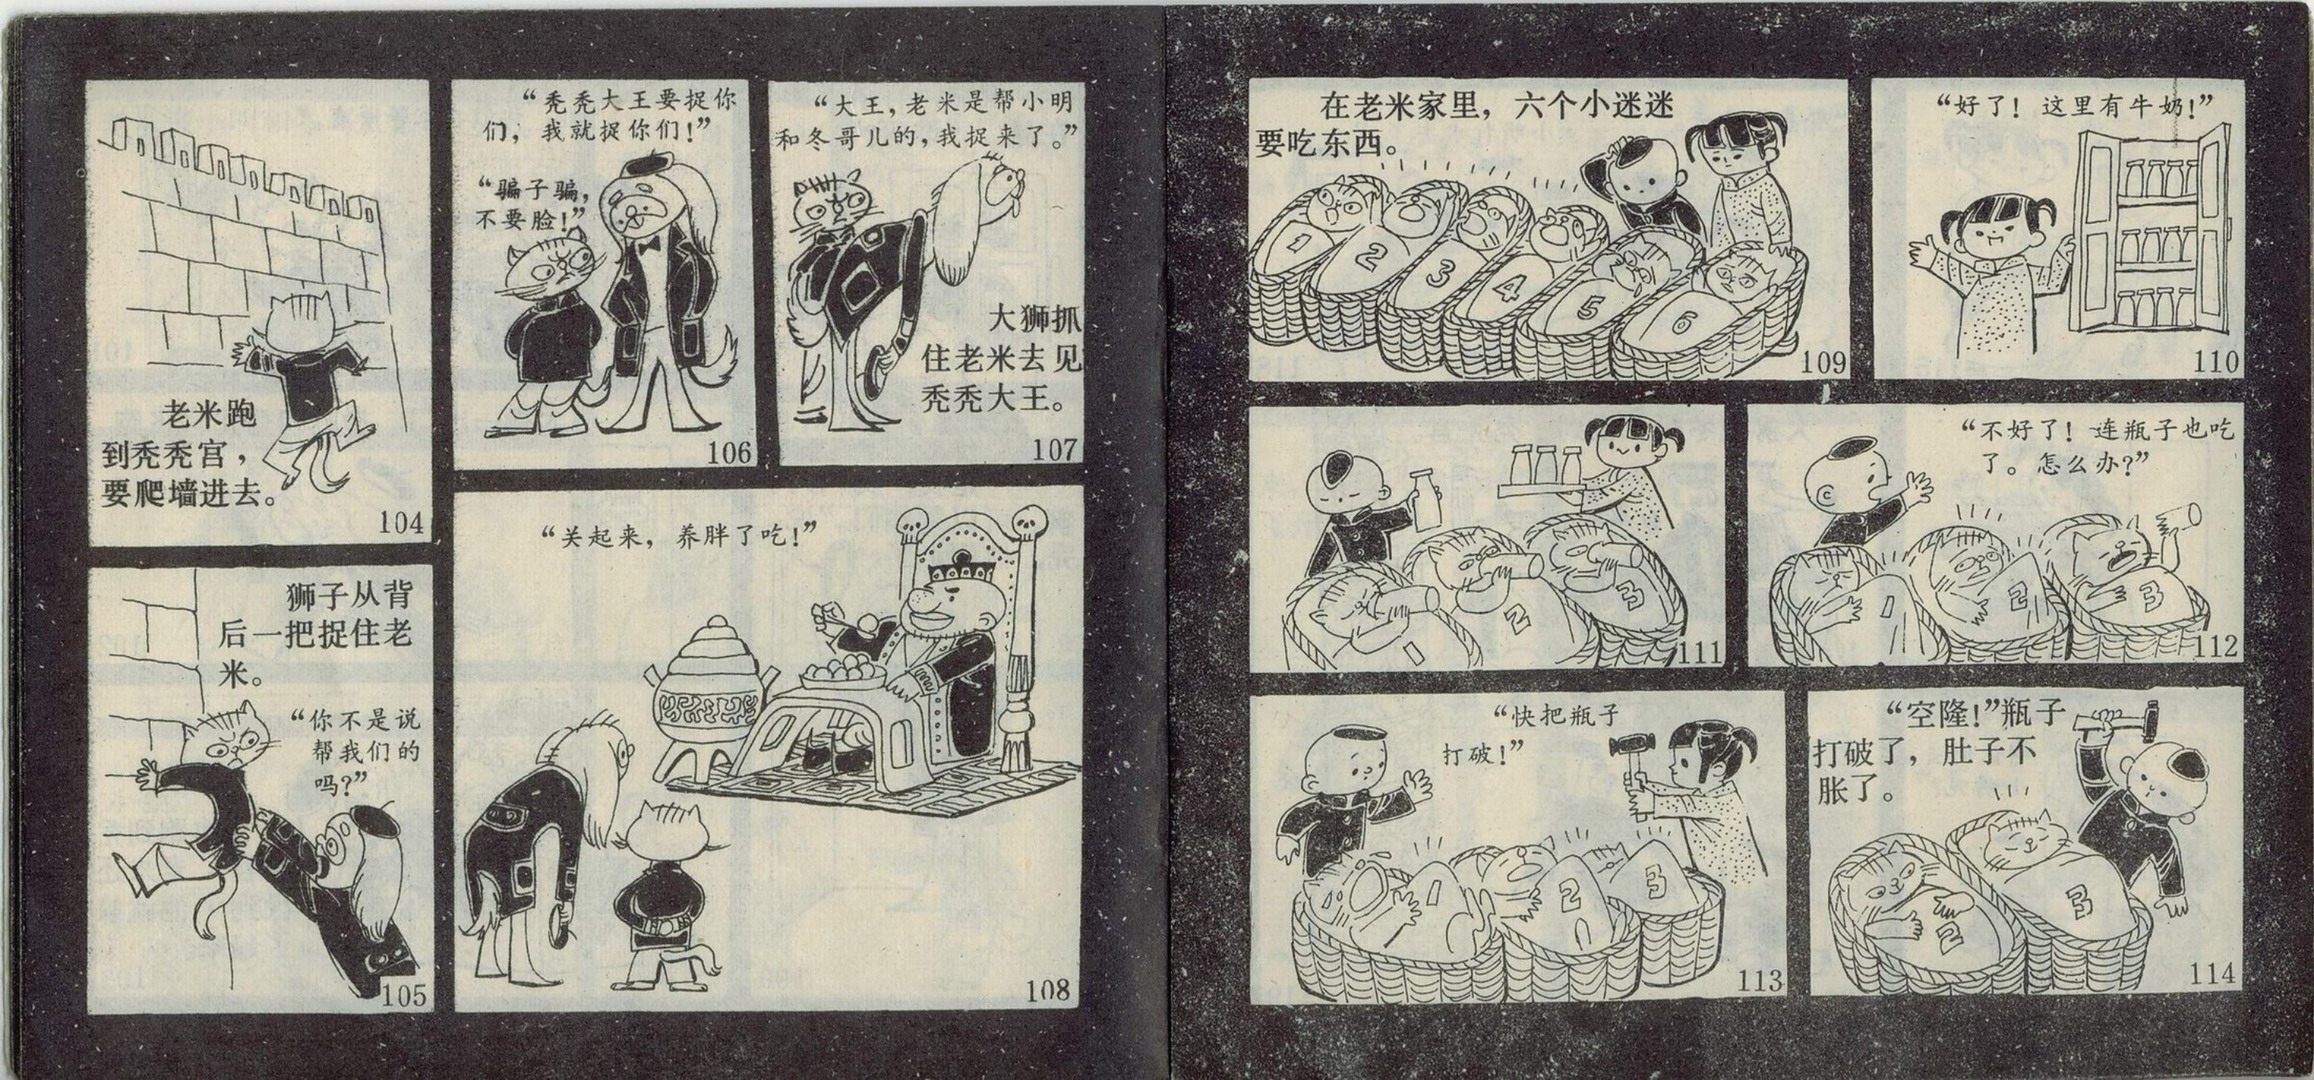 老米跑
到秃秃宫，
要爬墙进去。
104
狮子从背
后一把捉住老
米。
“你不是说
帮我们的
吗？”
105
“秃秃大王要捉你
们，我就捉你们！”
“骗子骗，
不要脸！”
106
“大王，老米是帮小明
和冬哥儿的，我捉来了。”
大狮抓
住老米去见
秃秃大王。
107
“关起来，养胖了吃！”
108
在老米家里，六个小迷迷
要吃东西。
1
2
3
4
5
6
109
“好了！这里有牛奶！”
110
1
2
3
111
“不好了！连瓶子也吃
了。怎么办？”
1
2
3
112
“快把瓶子
打破！”
1
2
3
113
“空隆！”瓶子
打破了，肚子不
胀了。
2
3
114